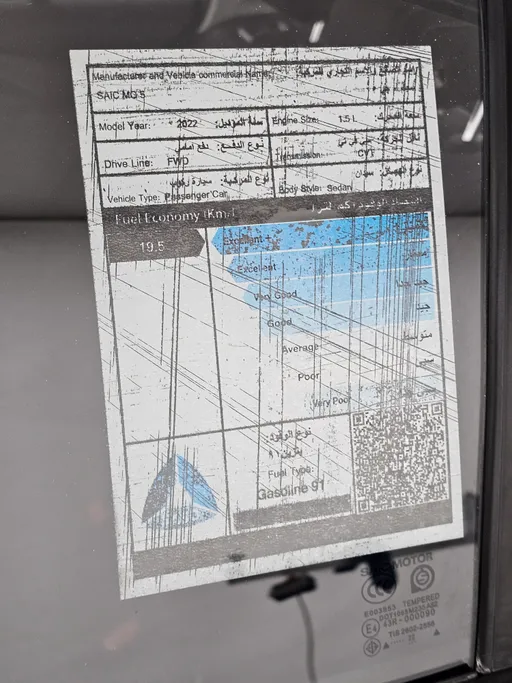 Manufacturer and Vehicle commercial Name:
SAIC MG 5
Model Year: 2022 سنة الموديل: Engine Size: 1.5 L
Drive Line: FWD نوع الدفع: دفع أمامي Transmission: CVT
Vehicle Type: Passenger Car نوع المركبة: Body Style: Sedan سيدان
Fuel Economy (Km/L)
19.5 Excellent+
Excellent ممتاز
Very Good جيد جدا
Good جيد
Average متوسط
Poor سيئ
Very Poor
نوع الوقود:
بنزين ٩١
Fuel Type:
Gasoline 91
MOTOR
TEMPERED
E4 43R-000090